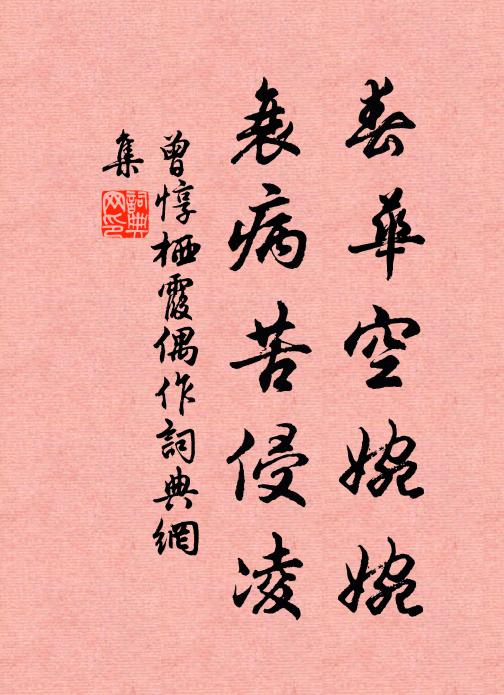 春華空婉婉
衰病苦侵凌
曾惇栖霞偶作詞典網
集
詞典
网印